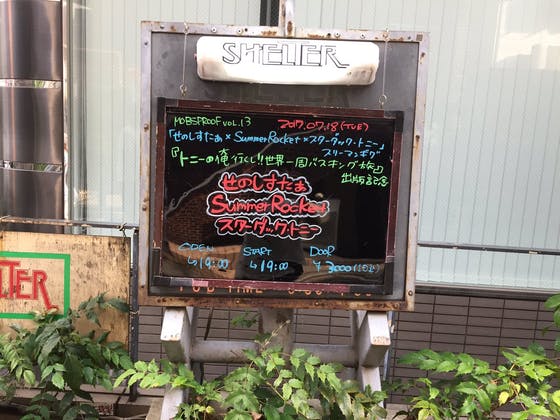 SHELTER
MOBSPROOF VOL.13 2017.07.18(TUE)
「せのしすたぁ×SummerRocket×スターダック・トニー」
スリーマンギグ
『トニーの俺行くし!!世界一周バスキング旅』
出版記念
せのしすたぁ
SummerRocket
スターダック・トニー
OPEN START DOOR
↳19:00 ↳19:00 ¥3000
TIME
TER